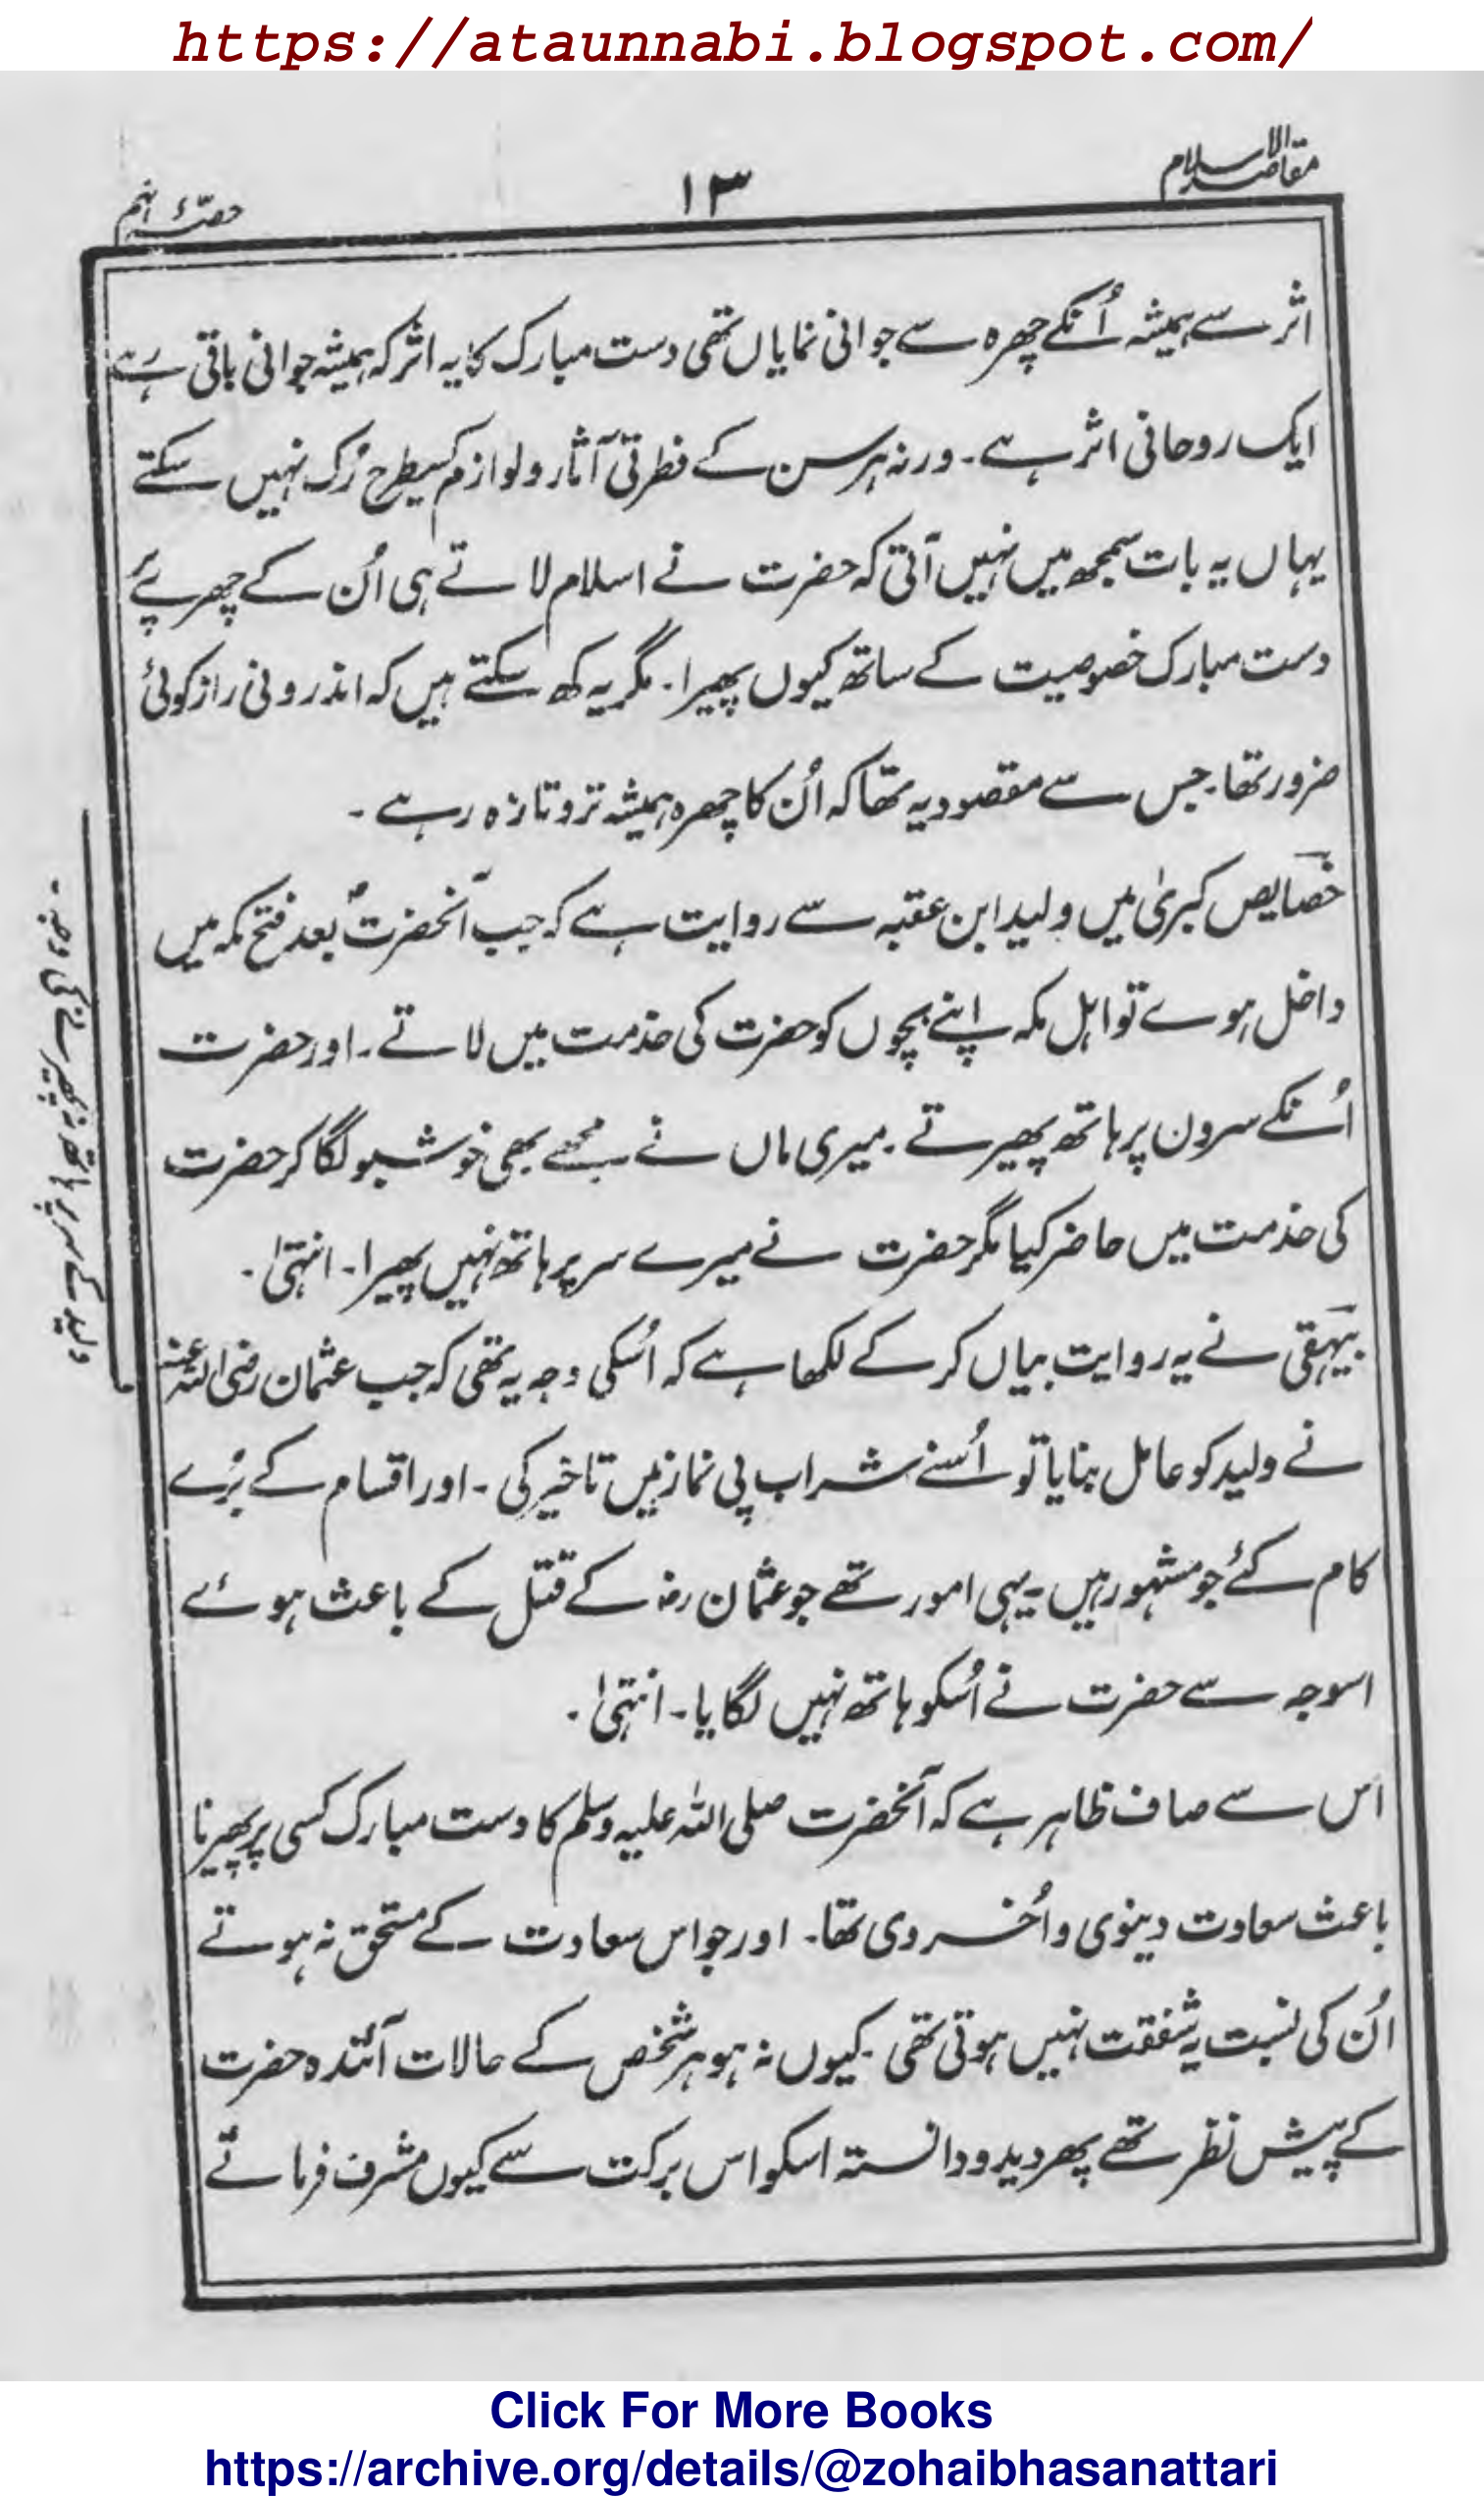 https://ataunnabi.blogspot.com/
مقاصد الاسلام
۱۳
حصّۂ نہم
اثر سے ہمیشہ اُنکے چہرہ سے جوانی نمایاں تھی دست مبارک کا یہ اثر کہ ہمیشہ جوانی باقی رہے
ایک روحانی اثر ہے۔ ورنہ ہر سن کے فطرتی آثار و لوازم کسیطرح رُک نہیں سکتے
یہاں یہ بات سمجھ میں نہیں آتی کہ حضرت نے اسلام لاتے ہی اُن کے چہرے پر
دست مبارک خصوصیت کے ساتھ کیوں پھیرا۔ مگر یہ کھ سکتے ہیں کہ اندرونی راز کوئی
ضرور تھا۔ جس سے مقصود یہ تھا کہ اُن کا چہرہ ہمیشہ تروتازہ رہے ۔
خصایص کبریٰ میں ولید ابن عقبہ سے روایت ہے کہ جب آنحضرتؐ بعد فتح مکہ میں
داخل ہوے تو اہل مکہ اپنے بچوں کو حضرت کی خدمت میں لاتے۔ اور حضرت
اُنکے سرون پر ہاتھ پھیرتے ۔ میری ماں نے مجھے بھی خوشبو لگا کر حضرت
کی خدمت میں حاضر کیا مگر حضرت نے میرے سر پر ہاتھ نہیں پھیرا۔ انتہیٰ ۔
بیہقی نے یہ روایت بیاں کر کے لکھا ہے کہ اُسکی وجہ یہ تھی کہ جب عثمان رضی اللہ عنہ
نے ولید کو عامل بنایا تو اُسنے شراب پی نماز میں تاخیر کی ۔ اور اقسام کے بُرے
کام کئے جو مشہور ہیں ۔ یہی امور تھے جو عثمان رضہ کے قتل کے باعث ہوئے
اسوجہ سے حضرت نے اُسکو ہاتھ نہیں لگایا۔ انتہیٰ ۔
اس سے صاف ظاہر ہے کہ آنحضرت صلی اللہ علیہ وسلم کا دست مبارک کسی پر پھیرنا
باعث سعادت دینوی و اُخروی تھا۔ اور جو اس سعادت کے مستحق نہ ہوتے
اُن کی نسبت یہ شفقت نہیں ہوتی تھی ۔ کیوں نہ ہو ہر شخص کے حالات آئندہ حضرت
کے پیش نظر تھے پھر دیدہ و دانستہ اسکو اس برکت سے کیوں مشرف فرماتے
ولید کے سر پر ہاتھ نہ پھیرنے کی وجہ ۔
Click For More Books
https://archive.org/details/@zohaibhasanattari